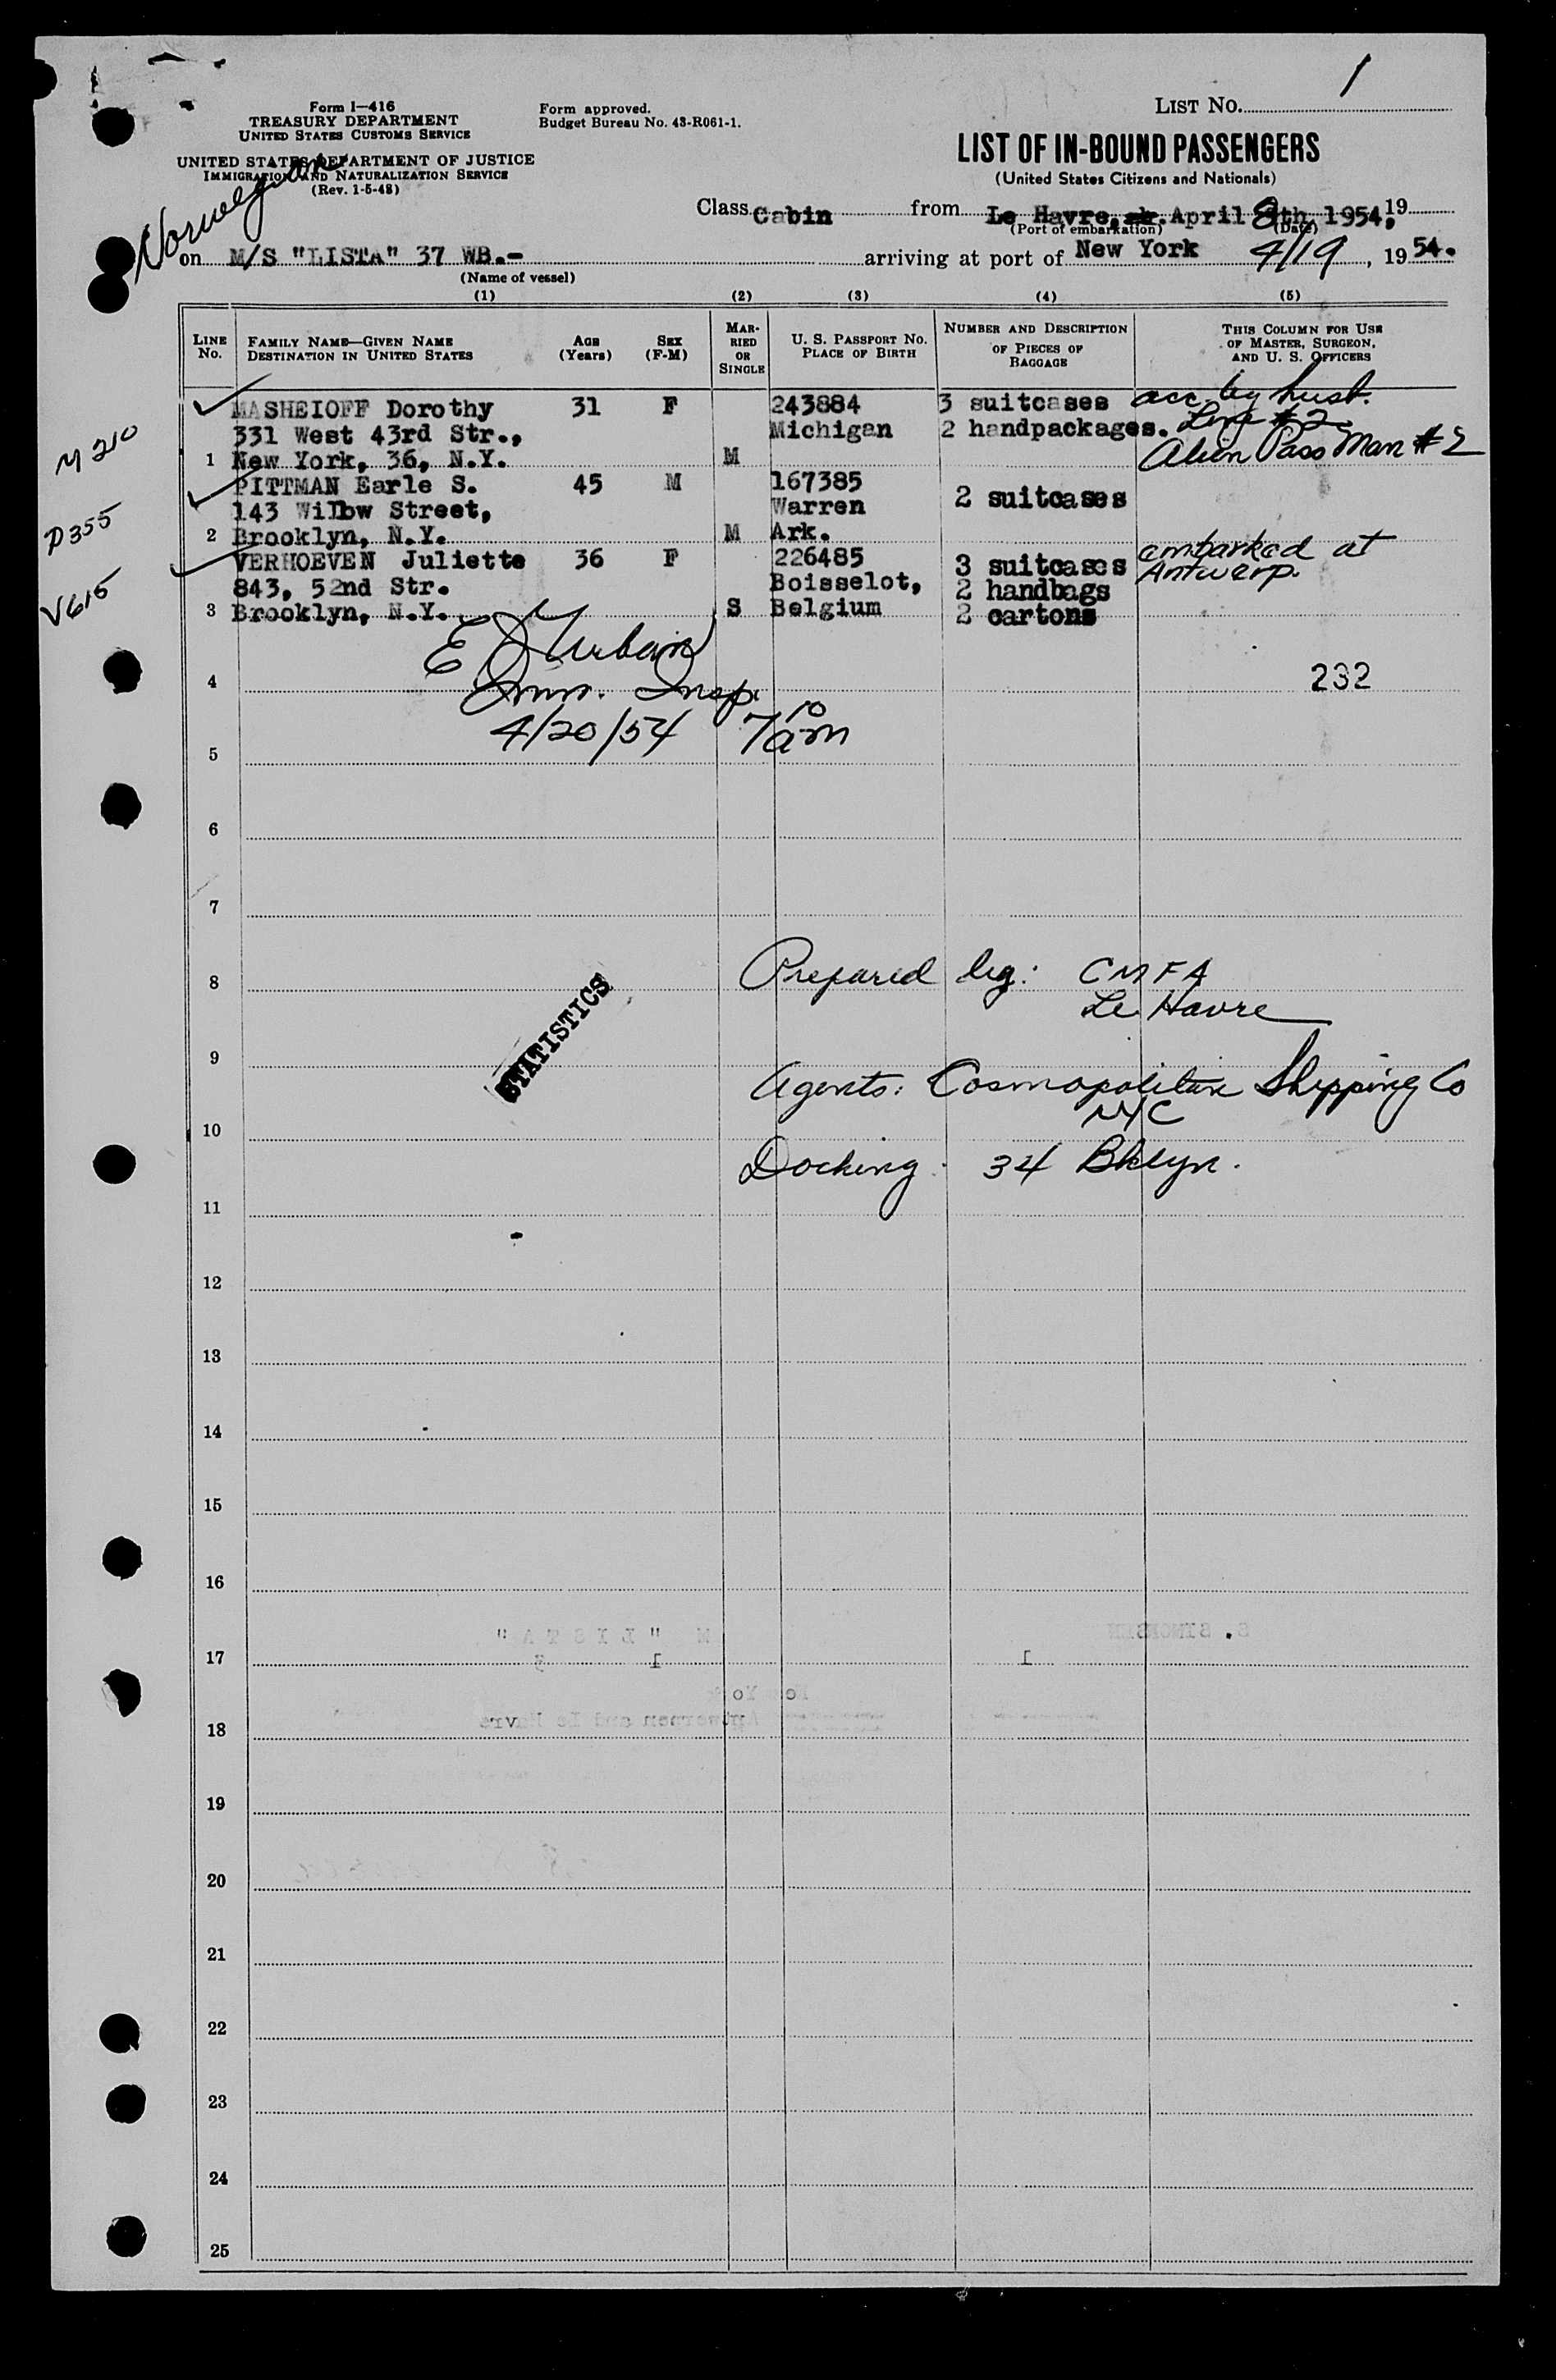 1
Form I—416
TREASURY DEPARTMENT
UNITED STATES CUSTOMS SERVICE
UNITED STATES DEPARTMENT OF JUSTICE
IMMIGRATION AND NATURALIZATION SERVICE
(Rev. 1-5-48)
Form approved.
Budget Bureau No. 43-R061-1.
LIST NO.
LIST OF IN-BOUND PASSENGERS
(United States Citizens and Nationals)
Norwegian
Class Cabin from Le Havre, April 8th, 1954, 19
(Port of embarkation) (Date)
on M/S "LISTA" 37 WB.- arriving at port of New York 4/19, 1954.
(Name of vessel)
(1) (2) (3) (4) (5)
LINE No. FAMILY NAME—GIVEN NAME DESTINATION IN UNITED STATES AGE (Years) SEX (F-M) MARRIED OR SINGLE U. S. PASSPORT NO. PLACE OF BIRTH NUMBER AND DESCRIPTION OF PIECES OF BAGGAGE THIS COLUMN FOR USE OF MASTER, SURGEON, AND U. S. OFFICERS
MASHEIOFF Dorothy 31 F 243884 3 suitcases acc by husb.
M 210 331 West 43rd Str., Michigan 2 handpackages. Line #2
1 New York, 36, N.Y. M Alien Pass Man #2
PITTMAN Earle S. 45 M 167385 2 suitcases
P355 143 Wilbw Street, Warren
2 Brooklyn, N.Y. M Ark.
VERHOEVEN Juliette 36 F 226485 3 suitcases embarked at
V615 843, 52nd Str. Boisselot, 2 handbags Antwerp.
3 Brooklyn, N.Y. S Belgium 2 cartons
E J Urban
4 Imm. Insp. 232
4/20/54 7 10 am
5
6
7
8 Prepared by: CMFA
Le Havre
STATISTICS
9
Agents: Cosmopolitan Shipping Co
NYC
10
Docking: 34 Bklyn.
11
12
13
14
15
16
M "LISTA"
17 1 3 1
18
19
20
21
22
23
24
25